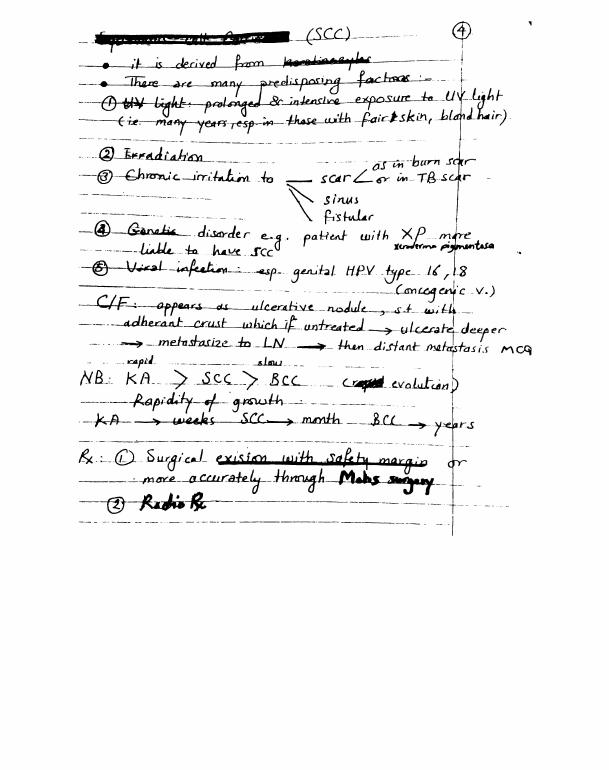 Squamous cell Carcinoma (SCC) ④
• it is derived from keratinocytes
• There are many predisposing factors :-
① UV light: prolonged & intensive exposure to UV light
(i.e. many years, esp in those with fair skin, blond hair)
② Irradiation
③ Chronic irritation to — scar < as in burn scar
or in TB scar
sinus
fistular
④ Genetic disorder e.g. patient with XP more
liable to have SCC xeroderma pigmentosa
⑤ Viral infection: esp. genital HPV type 16, 18
(oncogenic v.)
C/F: appears as ulcerative nodule, s.t with
adherant crust which if untreated → ulcerate deeper
→ metastasize to LN → then distant metastasis MCQ
rapid slow
NB: KA > SCC > BCC (rapid evolution)
Rapidity of growth
KA → weeks SCC → month BCC → years
Rx: ① Surgical exision with safety margin or
more accurately through Mohs surgery
② Radio Rx